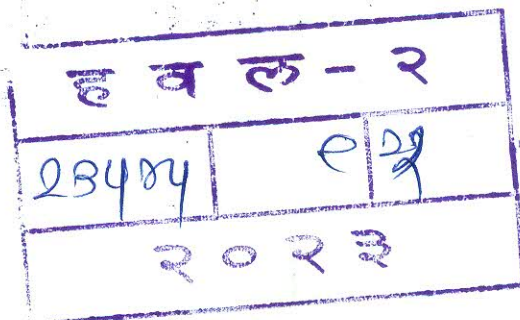 ह व ल - २
२३५४५ ९
२०२३